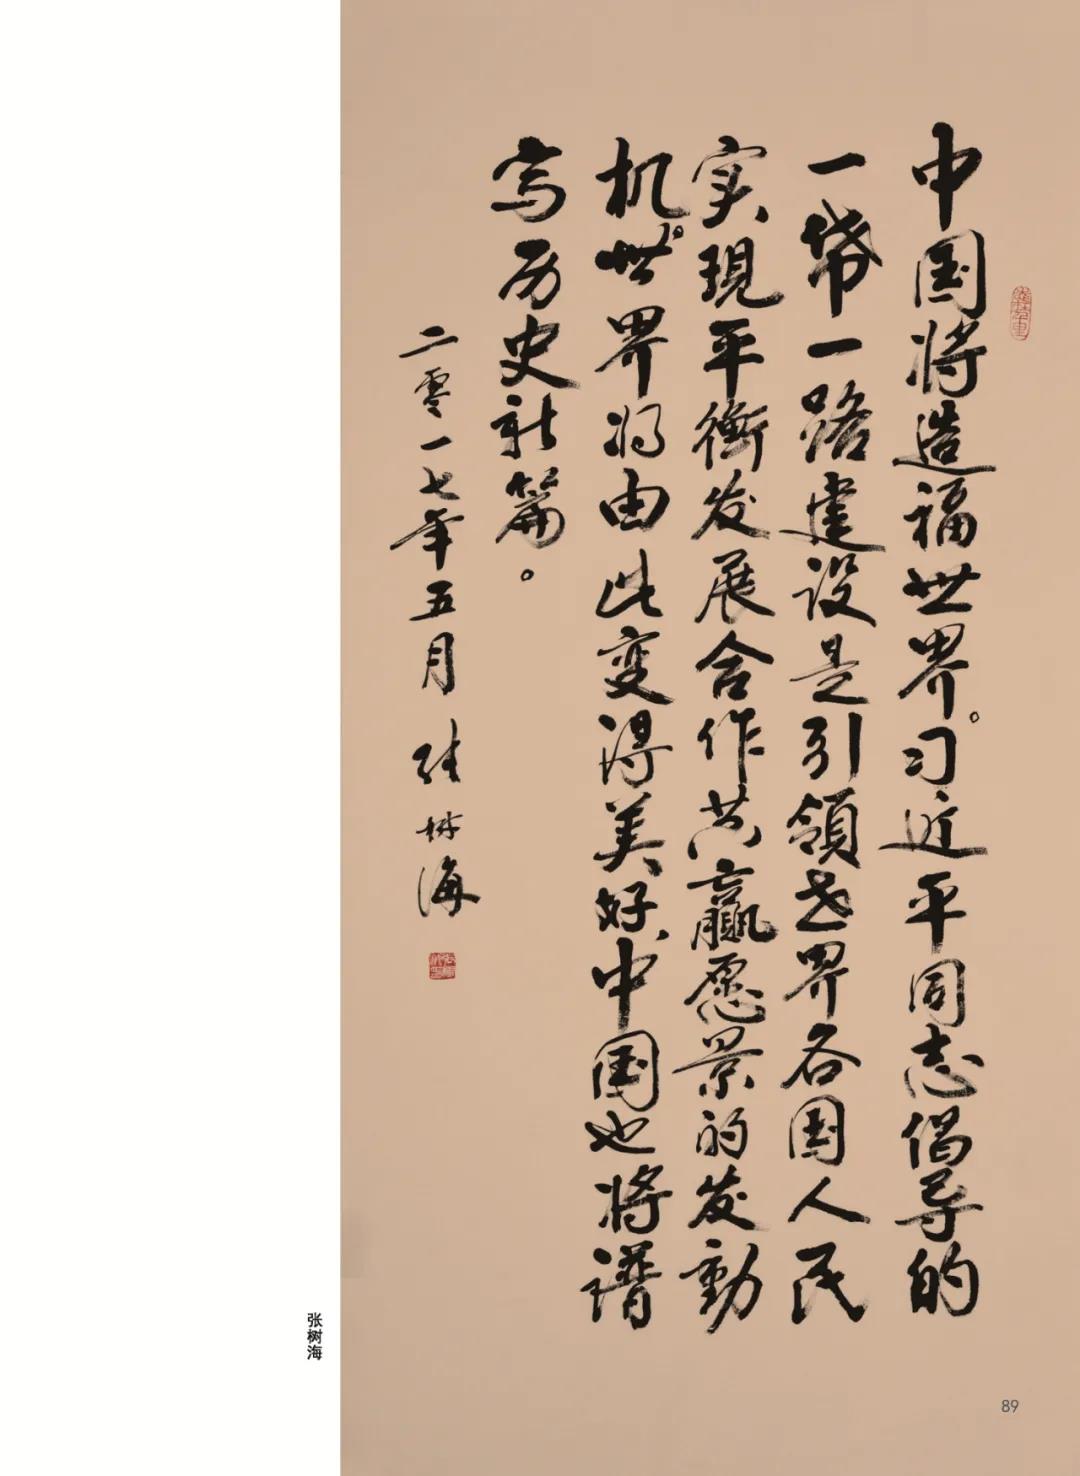 中国将造福世界。习近平同志倡导的
一带一路建设是引領世界各国人民
实現平衡发展合作共赢愿景的发動
机。世界将由此变得美好，中国也将谱
写历史新篇。
二零一七年五月 张树海
张树海
89